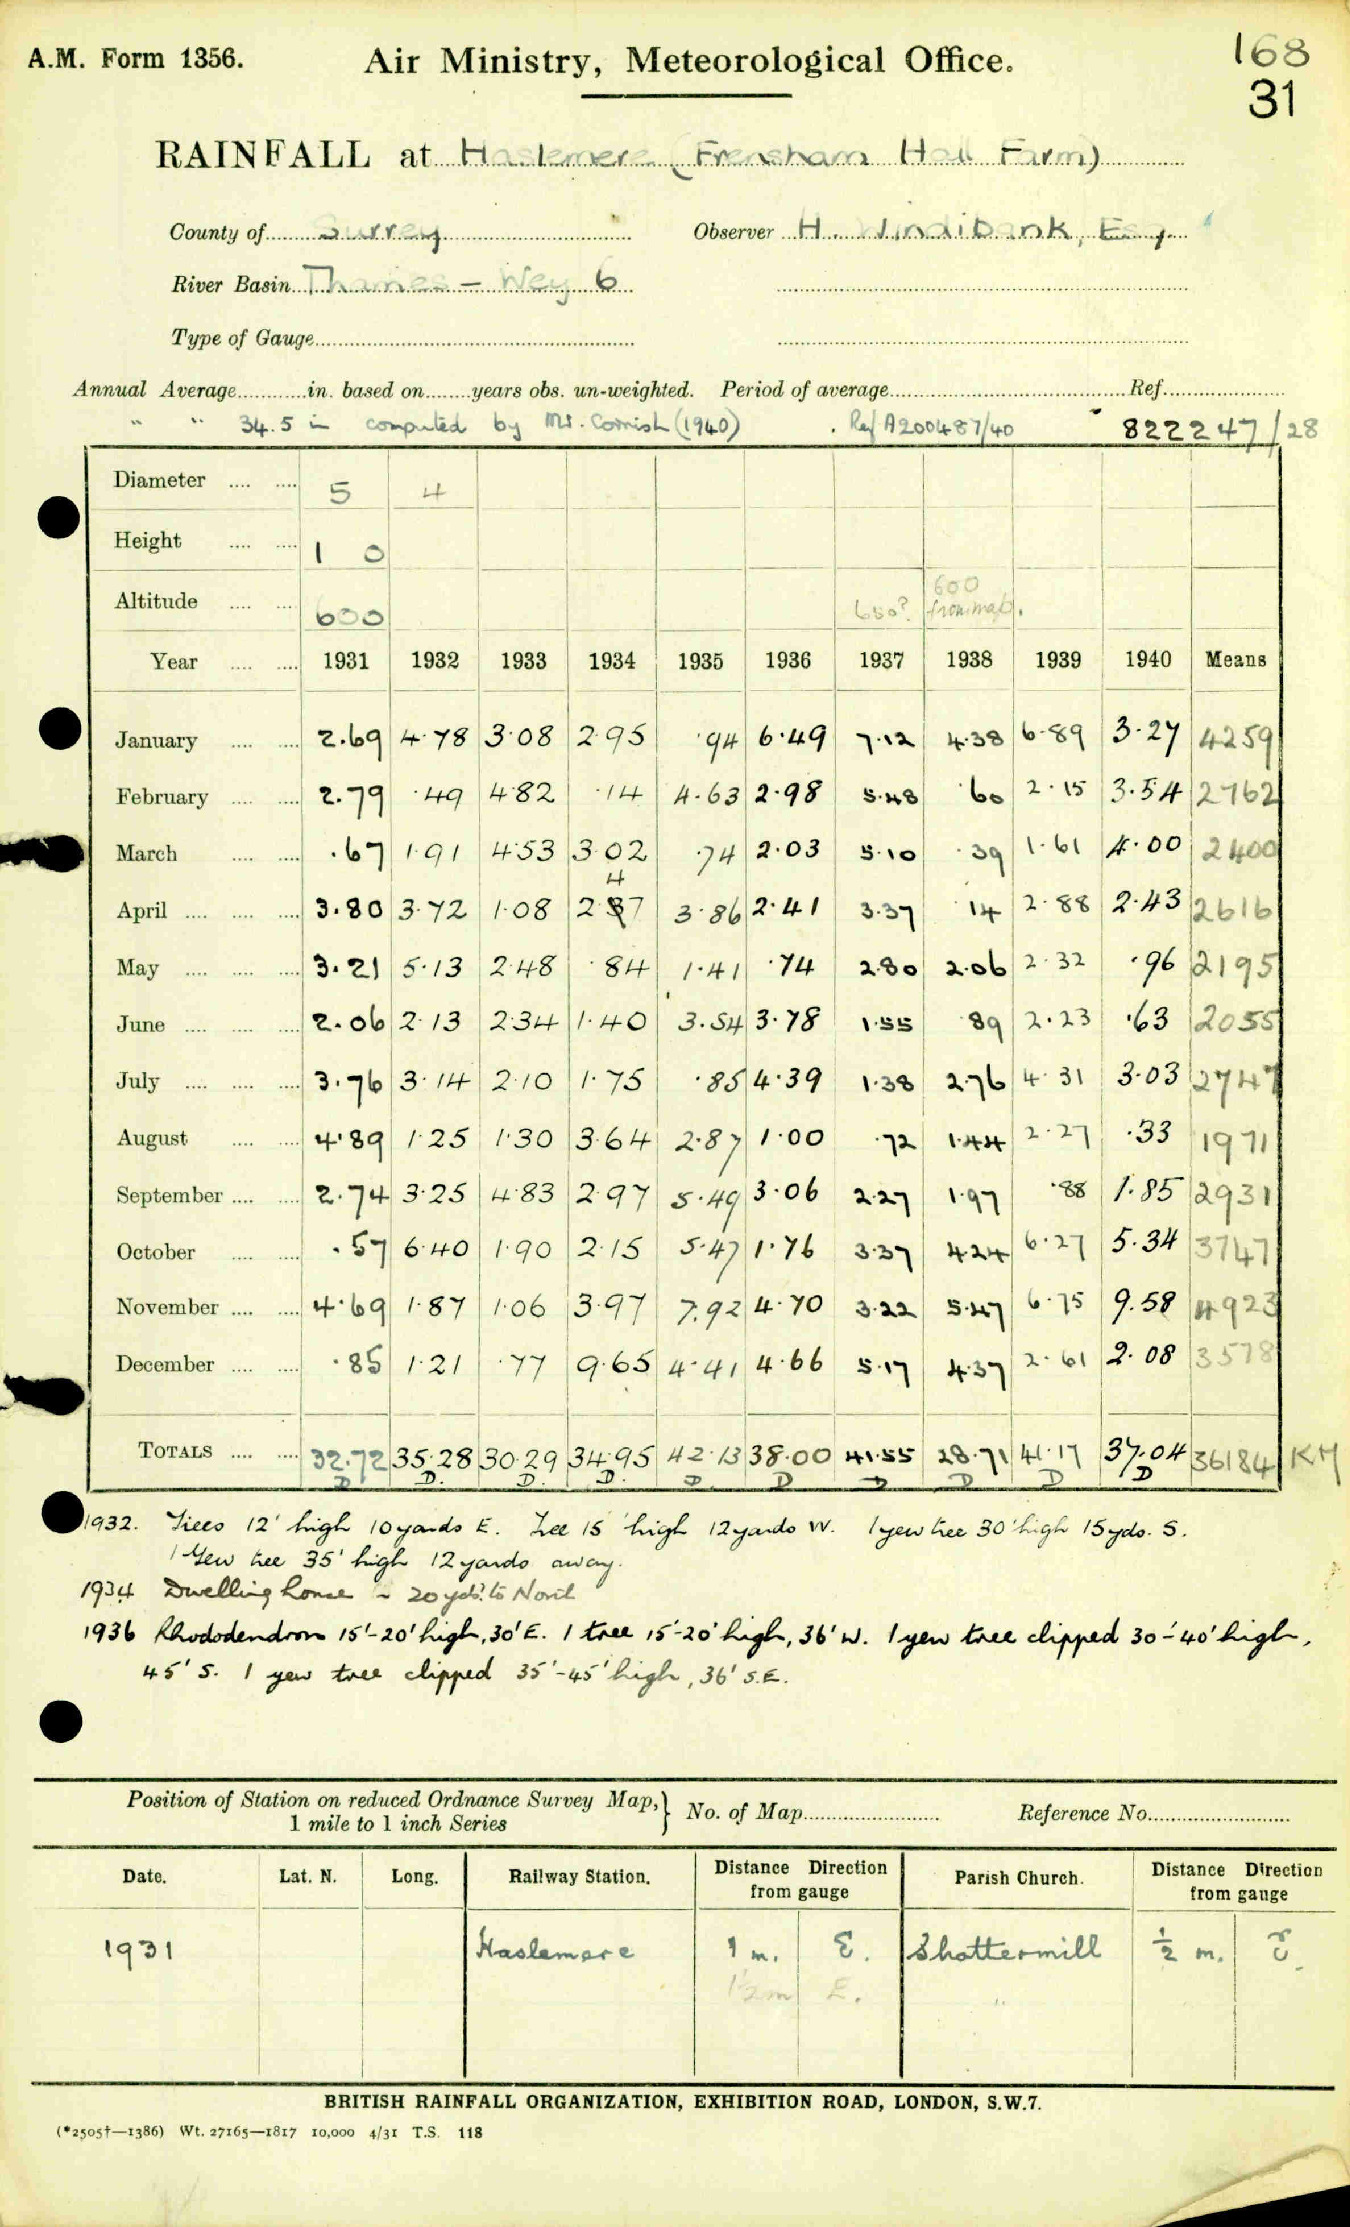 A.M. Form 1356.
Air Ministry, Meteorological Office.
168
31
RAINFALL at Haslemere (Frensham Hall Farm)
County of Surrey Observer H. Windibank, Esq.
River Basin Thames - Wey 6
Type of Gauge
Annual Average in. based on years obs. un-weighted. Period of average Ref.
" " 34.5 in computed by Mr. Cornish (1940) . Ref A200487/40 822247/28
Diameter 5 4
Height 1 0
Altitude 600 650? 600 from map.
Year 1931 1932 1933 1934 1935 1936 1937 1938 1939 1940 Means
January 2.69 4.78 3.08 2.95 .94 6.49 7.12 4.38 6.89 3.27 4259
February 2.79 .49 4.82 .14 4.63 2.98 5.48 .60 2.15 3.54 2762
March .67 1.91 4.53 3.02 .74 2.03 5.10 .39 1.61 4.00 2400
4
April 3.80 3.72 1.08 2.37 3.86 2.41 3.37 .14 2.88 2.43 2616
May 3.21 5.13 2.48 .84 1.41 .74 2.80 2.06 2.32 .96 2195
June 2.06 2.13 2.34 1.40 3.54 3.78 1.55 .89 2.23 .63 2055
July 3.76 3.14 2.10 1.75 .85 4.39 1.38 2.76 4.31 3.03 2747
August 4.89 1.25 1.30 3.64 2.87 1.00 .72 1.44 2.27 .33 1971
September 2.74 3.25 4.83 2.97 5.49 3.06 2.27 1.97 .88 1.85 2931
October .57 6.40 1.90 2.15 5.47 1.76 3.37 4.24 6.27 5.34 3747
November 4.69 1.87 1.06 3.97 7.92 4.70 3.22 5.47 6.75 9.58 4923
December .85 1.21 .77 9.65 4.41 4.66 5.17 4.37 2.61 2.08 3578
TOTALS 32.72 35.28 30.29 34.95 42.13 38.00 41.55 28.71 41.17 37.04 36184 KM
D D. D. D. D D D D D D
1932. Trees 12' high 10 yards E. Tree 15' high 12 yards W. 1 yew tree 30' high 15 yds. S.
1 Yew tree 35' high 12 yards away.
1934 Dwelling house - 20 yds. to North
1936 Rhododendron 15'-20' high, 30' E. 1 tree 15'-20' high, 36' W. 1 yew tree clipped 30'-40' high,
45' S. 1 yew tree clipped 35'-45' high, 36' S.E.
Position of Station on reduced Ordnance Survey Map, 1 mile to 1 inch Series } No. of Map Reference No.
Date. Lat. N. Long. Railway Station. Distance Direction from gauge Parish Church. Distance Direction from gauge
1931 Haslemere 1 m. E. Shottermill ½ m. E.
1½ m E. "
BRITISH RAINFALL ORGANIZATION, EXHIBITION ROAD, LONDON, S.W.7.
(*2505†—1386) Wt. 27165—1817 10,000 4/31 T.S. 118